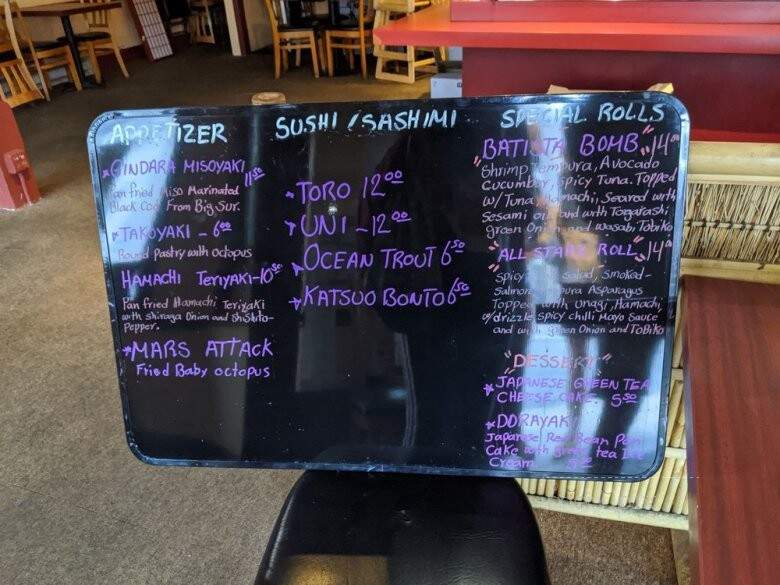 APPETIZER
* GINDARA MISOYAKI 11 50
Pan fried Miso Marinated
Black Cod From Big Sur.
* TAKOYAKI - 6 00
Round Pastry with octopus
HAMACHI TERIYAKI - 10 50
Pan fried Hamachi Teriyaki
with shiraga Onion and Shishito-
Pepper.
* MARS ATTACK
Fried Baby octopus
SUSHI / SASHIMI
* TORO 12 00
* UNI - 12 00
* OCEAN TROUT 6 50
* KATSUO BONTO 6 50
SPECIAL ROLLS
BATISTA BOMB 14 00
Shrimp Tempura, Avocado
Cucumber, Spicy Tuna. Topped
w/ Tuna, Hamachi, Seared with
Sesami oil and with Togarashi
green Onion and wasabi, Tobiko
"ALL STARS ROLL" 14
Spicy Salad, Smoked-
Salmon Asparagus
Topped with Unagi, Hamachi,
w/ drizzle spicy chilli Mayo Sauce
and with green Onion and Tobiko
"DESSERT"
* JAPANESE GREEN TEA
CHEESE CAKE. 5 50
* DORAYAKI
Japanese Red Bean Pan
Cake with green tea Ice
Cream